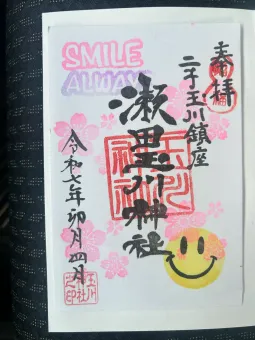 SMILE
ALWAYS
奉拝
二子玉川鎮座
瀬田玉川神社
令和七年卯月四日